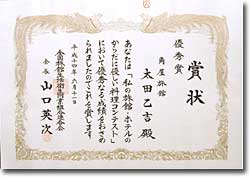 賞状
優秀賞
角屋旅館
太田乙吉殿
あなたは「私の旅館・ホテルの
からだに優しい料理コンテスト」
において優秀なる成績をおさめ
られましたのでこれを賞します
平成十四年六月十一日
全国旅館生活衛生同業組合連合会
会長
山口英次